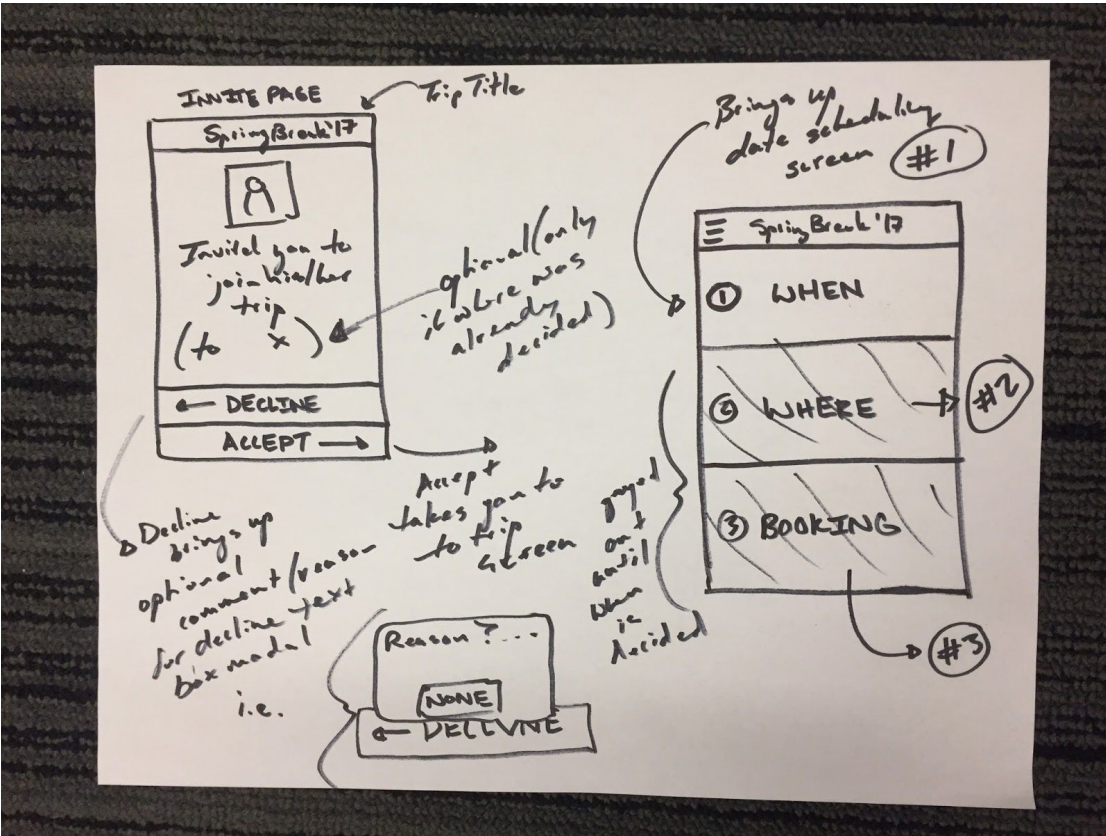 INVITE PAGE
Trip Title
SpringBreak'17
Invited you to
join him/her
trip
(to x)
optional (only
if where was
already
decided)
← DECLINE
ACCEPT →
Accept
takes you to
to trip
screen
Decline
brings up
optional
comment/reason
for decline text
box modal
i.e.
Reason?...
NONE
← DECLINE
Brings up
date scheduling
screen #1
SpringBreak'17
① WHEN
② WHERE → #2
③ BOOKING
#3
grayed
out
until
when
is
decided